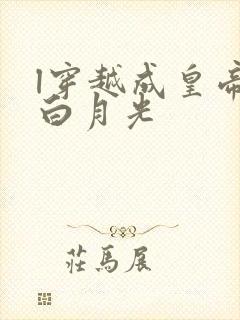 l穿越成皇帝
白月光
莊馬展